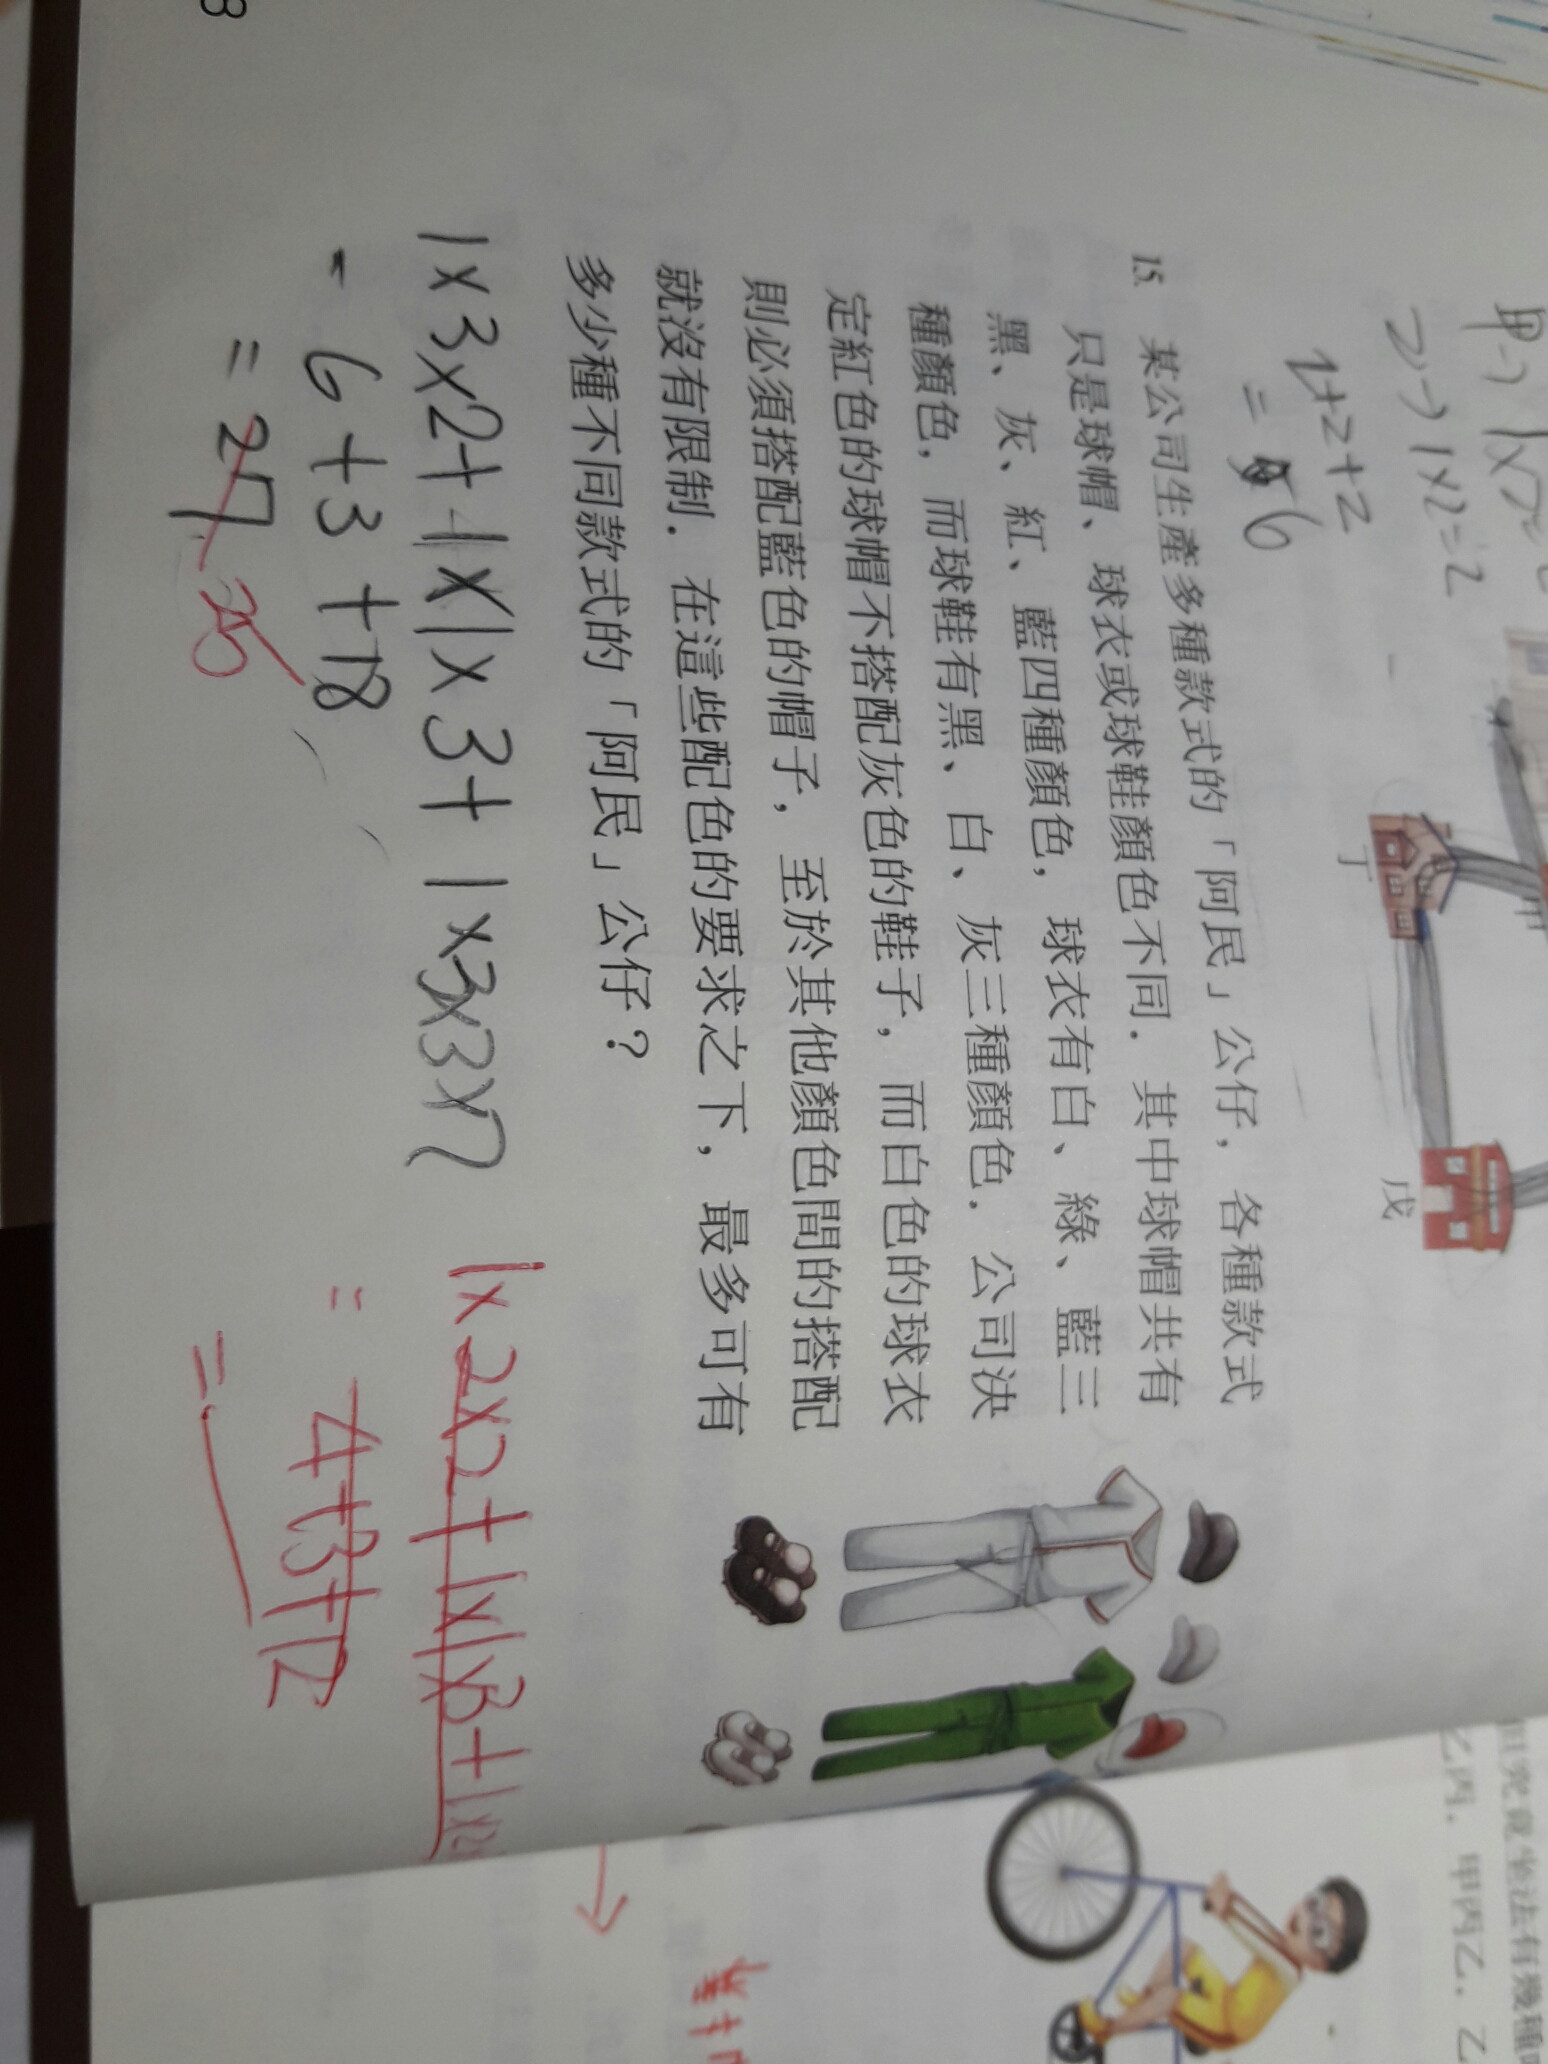 甲→1×2=
乙→1×2=2
2+2+2
=6
丁
戊
15. 某公司生產多種款式的「阿民」公仔，各種款式
只是球帽、球衣或球鞋顏色不同．其中球帽共有
黑、灰、紅、藍四種顏色，球衣有白、綠、藍三
種顏色，而球鞋有黑、白、灰三種顏色．公司決
定紅色的球帽不搭配灰色的鞋子，而白色的球衣
則必須搭配藍色的帽子，至於其他顏色間的搭配
就沒有限制．在這些配色的要求之下，最多可有
多少種不同款式的「阿民」公仔？
1×3×2+1×1×3+1×3×3×2
6+3+18
=27
25
1×2×2+1×1×3+1×2
=4+3+12
=
8
乙丙，甲丙乙，乙
究竟坐法有幾種